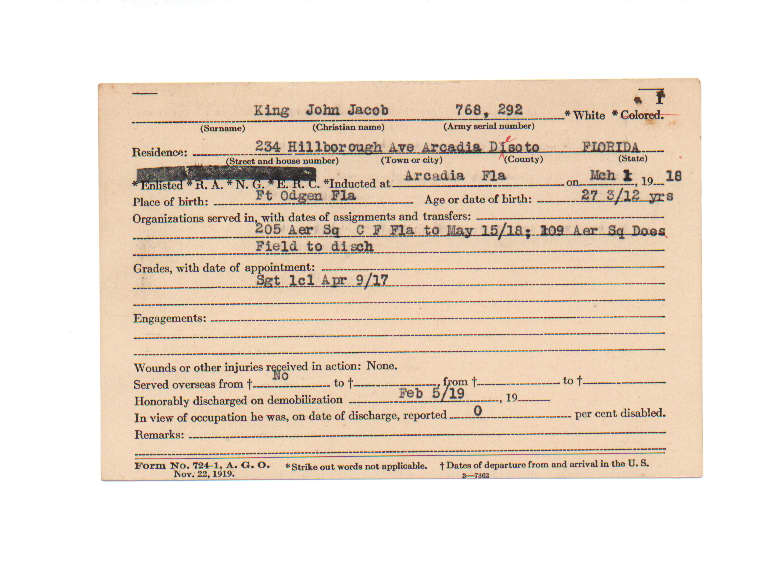 1
King John Jacob 768, 292 *White *Colored.
(Surname) (Christian name) (Army serial number)
Residence: 234 Hillborough Ave Arcadia Disoto FlORIDA
(Street and house number) (Town or city) (County) (State)
*Enlisted *R. A. *N. G. *E. R. C. *Inducted at Arcadia Fla on Mch 1, 19 18
Place of birth: Ft Odgen Fla Age or date of birth: 27 3/12 yrs
Organizations served in, with dates of assignments and transfers:
205 Aer Sq C F Fla to May 15/18; 109 Aer Sq Does
Field to disch
Grades, with date of appointment:
Sgt 1cl Apr 9/17
Engagements:
Wounds or other injuries received in action: None.
Served overseas from † No to † , from † to †
Honorably discharged on demobilization Feb 5/19 , 19
In view of occupation he was, on date of discharge, reported 0 per cent disabled.
Remarks:
Form No. 724-1, A. G. O. *Strike out words not applicable. † Dates of departure from and arrival in the U. S.
Nov. 22, 1919. 3—7362